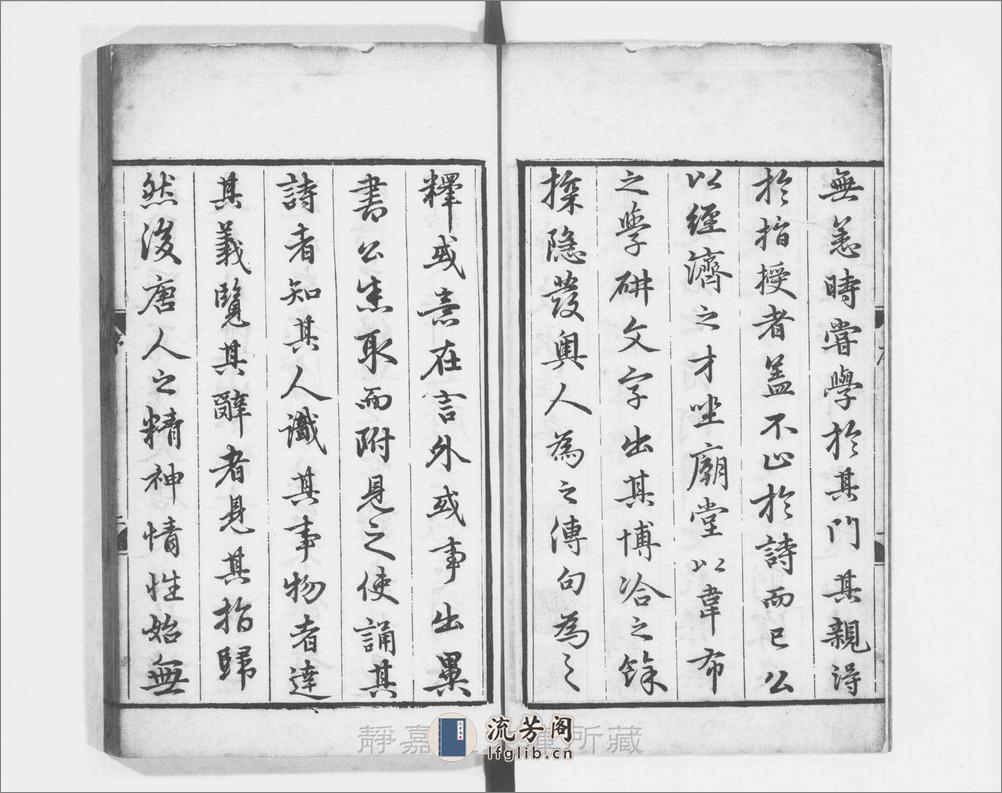 無恙時嘗學於其門其親得
於指授者蓋不止於詩而已公
以經濟之才坐廟堂以韋布
之學研文字出其博洽之餘
探隱發奧人為之傳句為之
釋或意在言外或事出異
書公悉取而附見之使誦其
詩者知其人識其事物者達
其義覽其辭者見其指歸
然後唐人之精神情性始無
靜嘉堂文庫所藏
流芳阁
lfglib.cn